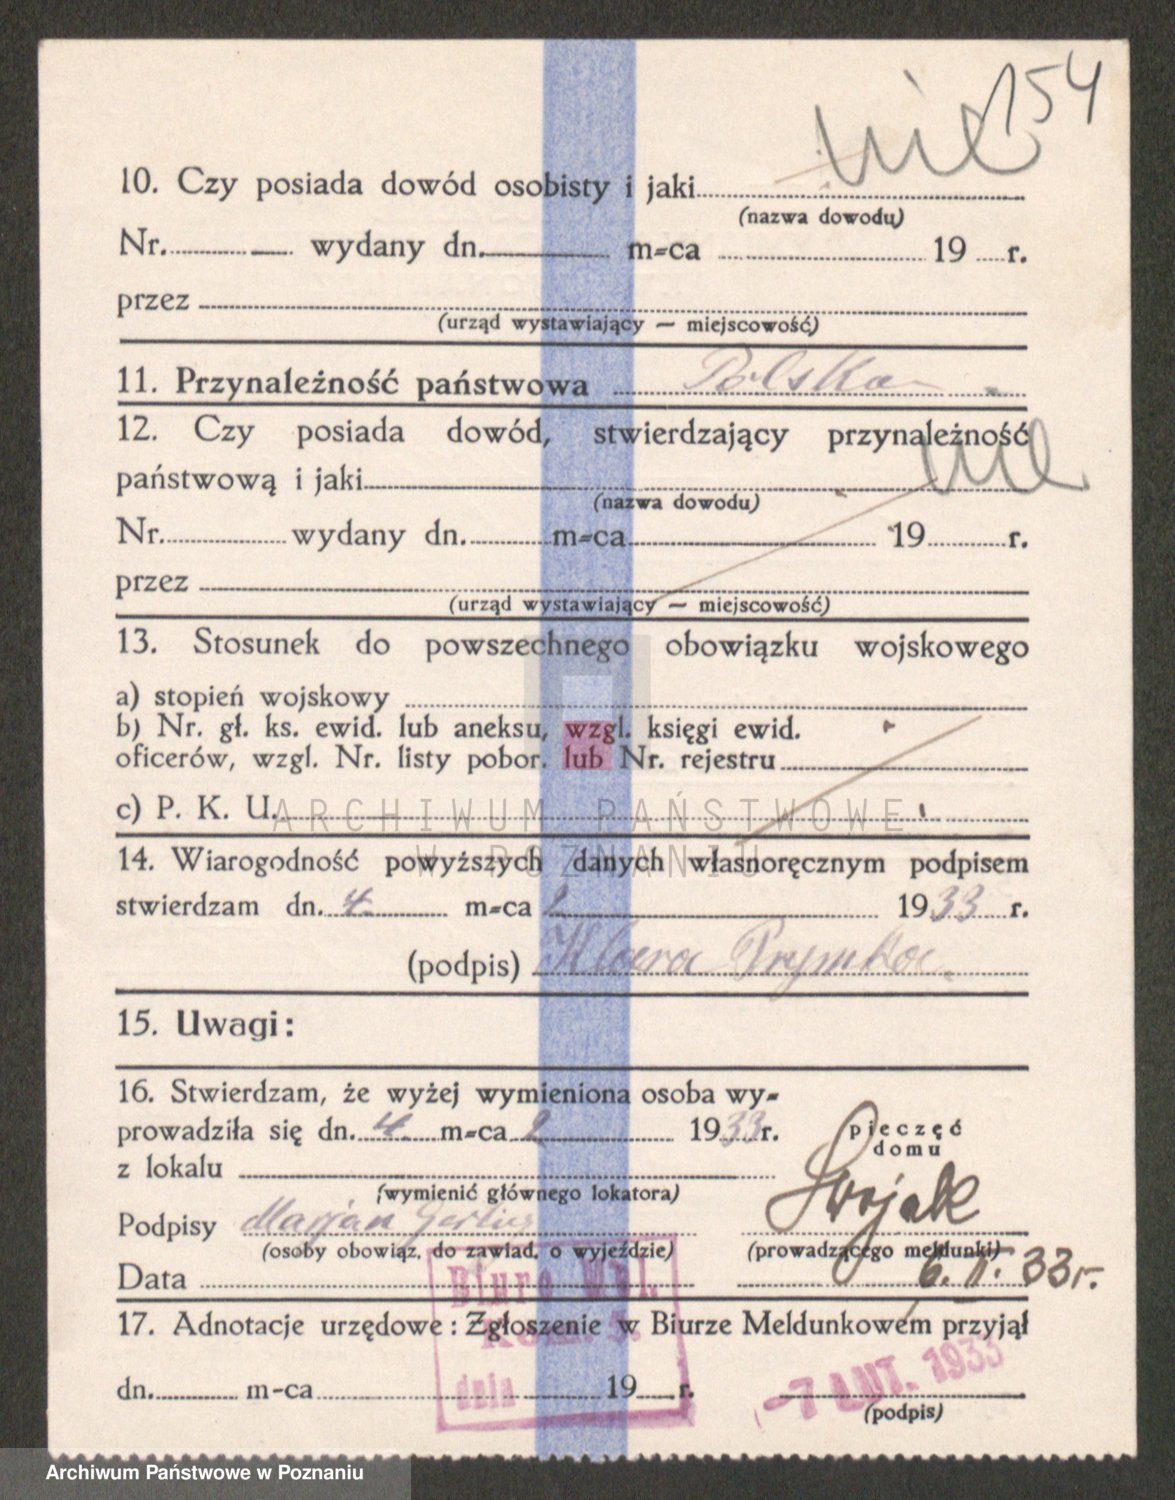 154
nie
10. Czy posiada dowód osobisty i jaki
(nazwa dowodu)
Nr. — wydany dn. m-ca 19 r.
przez
(urząd wystawiający — miejscowość)
11. Przynależność państwowa Polska
12. Czy posiada dowód, stwierdzający przynależność
państwową i jaki nie
(nazwa dowodu)
Nr. wydany dn. m-ca 19 r.
przez
(urząd wystawiający — miejscowość)
13. Stosunek do powszechnego obowiązku wojskowego
a) stopień wojskowy
b) Nr. gł. ks. ewid. lub aneksu, wzgl. księgi ewid.
oficerów, wzgl. Nr. listy pobor. lub Nr. rejestru
c) P. K. U.
ARCHIWUM PAŃSTWOWE
W POZNANIU
14. Wiarogodność powyższych danych własnoręcznym podpisem
stwierdzam dn. 4. m-ca 2 1933 r.
(podpis) Klara Prymka
15. Uwagi:
16. Stwierdzam, że wyżej wymieniona osoba wy-
prowadziła się dn. 4. m-ca 2 1933 r.
pieczęć
domu
z lokalu
(wymienić głównego lokatora)
Podpisy Marjan Swojak
(osoby obowiąz. do zawiad. o wyjeździe) (prowadzącego meldunki)
Data 6. II. 33 r.
Biuro Mel.
Kom. 5.
dnia
17. Adnotacje urzędowe: Zgłoszenie w Biurze Meldunkowem przyjął
dn. m-ca 19 r. -7 LUT. 1933
(podpis)
Archiwum Państwowe w Poznaniu